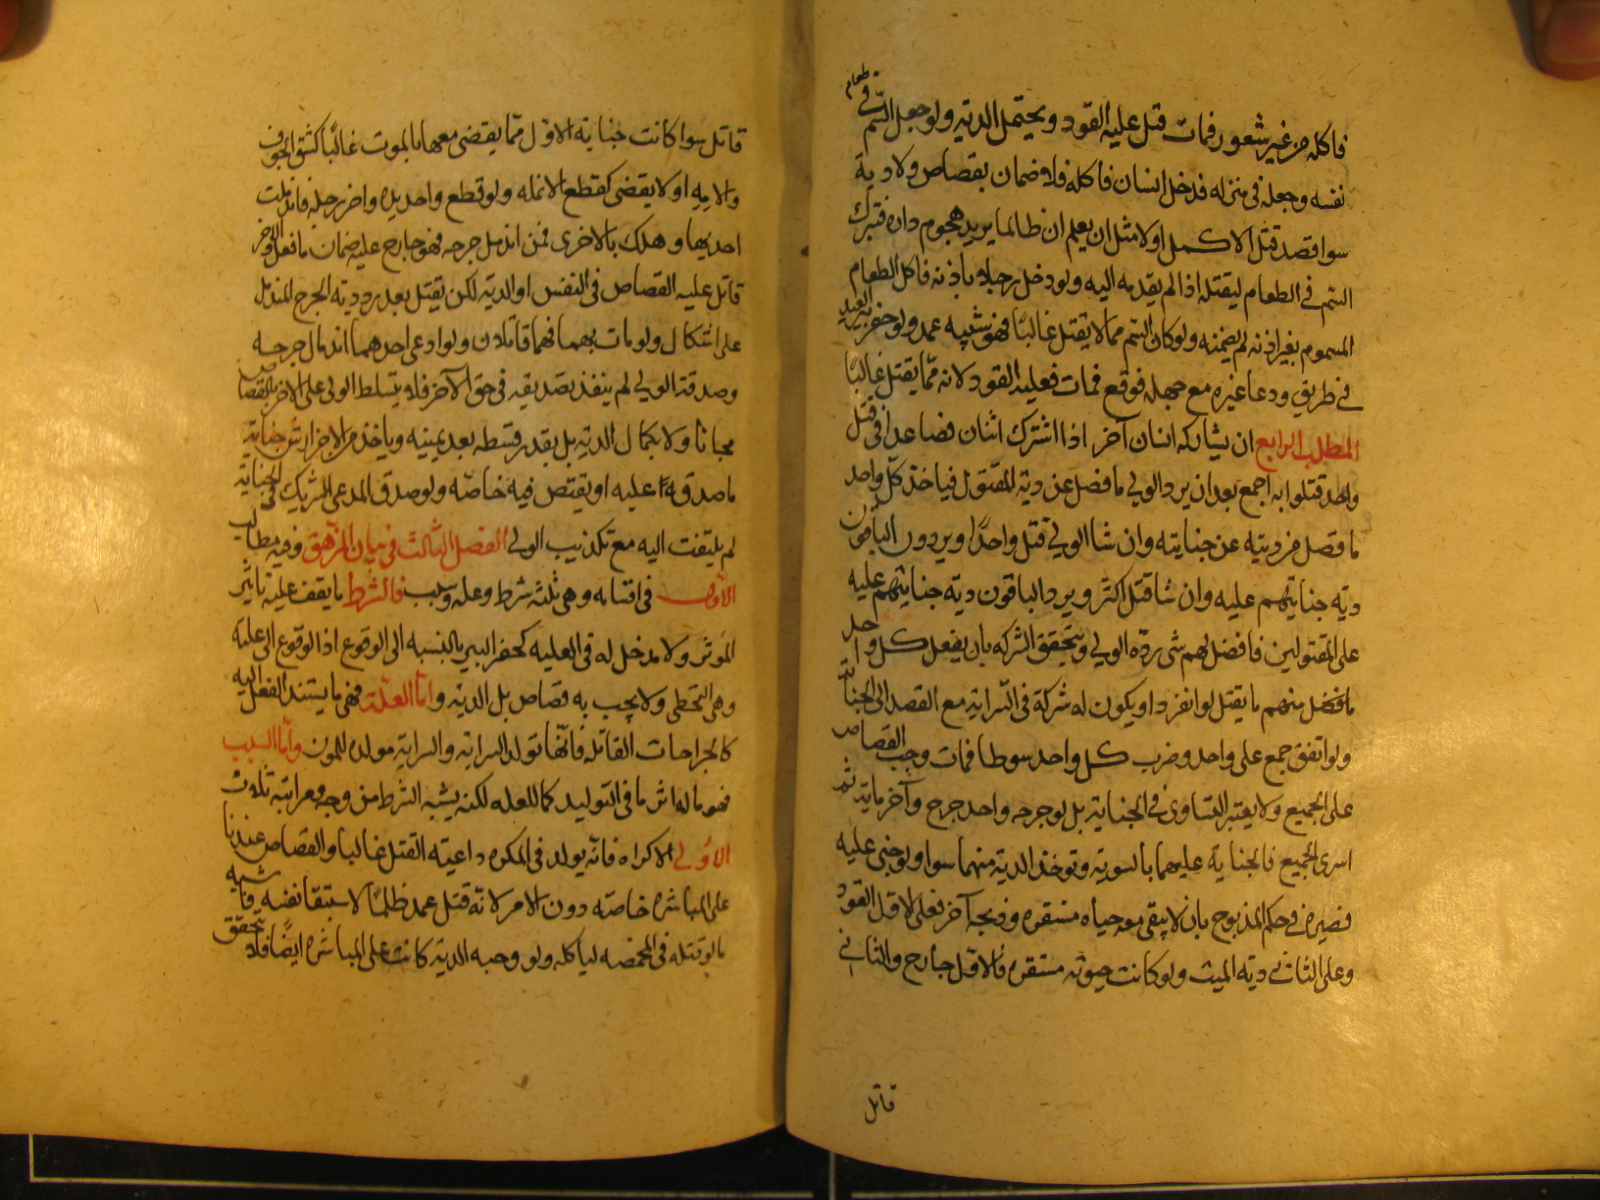 فاكله من غير شعور فمات قتل عليه القود ويحتمل الدية ولو جعل السم في طعام
نفسه وجعله في منزله فدخل انسان فاكله فلا ضمان بقصاص ولا دية
سوا قصد قتل الاكل اولا مثل ان يعلم ان ظالما يريد هجوم داره فترك
السم في الطعام ليقتله اذا لم يقدمه اليه ولو دخل رجل باذنه فاكل الطعام
المسموم بغير اذنه لم يضمنه ولو كان السم مما لا يقتل غالبًا فهو شبيه عمد ولو حفر البير البعيد
في طريق ودعا غيره مع جهله فوقع فمات فعليه القود لانه مما يقتل غالبًا
المطلب الرابع ان يشاركه انسان آخر اذا اشترك اثنان فصاعدا في قتل
واحد قتلوا به اجمع بعد ان يرد الولي ما فضل عن دية المقتول فياخذ كل واحد
ما فضل من ديته عن جنايته وان شا الولي قتل واحدًا ويردون الباقون
دية جنايتهم عليه وان شا قتل اكثر ويرد الباقون دية جنايتهم عليه
على المقتولين فما فضل لهم شي رده الولي وتتحقق الشركة بان يفعل كل واحد
منهم ما يقتل لو انفرد او يكون له شركة في السراية مع القصد الى الجناية
ولو اتفق جمع على واحد وضرب كل واحد سوطا فمات وجب القصاص
على الجميع ولا يعتبر التساوي في الجناية بل لو جرحه واحد جرح وآخر ماية ثم
اسرى الجميع فالجناية عليهما بالسوية وتوخذ الدية منهما سوا ولو جنى عليه
فصيره في حكم المذبوح بان لا يبقى معه حياه مستقره وذبحه آخر فعلى الاول القود
وعلى الثاني دية الميت ولو كانت حيوته مستقره فالاول جارح والثاني
قاتل
قاتل سوا كانت جناية الاول مما يقضى معها بالموت غالبًا كشق الجوف
والامه او لا يقضى كقطع الانمله ولو قطع واحد يده واخر رجله فاندملت
احديها وهلك بالاخرى فمن اندمل جرحه فهو جارح عليه ضمان ما فعل والاخر
قاتل عليه القصاص في النفس او الدية لكن يقتل بعد رد دية الجرح المندمل
على اشكال ولو مات بهما فهما قاتلان ولو ادعى احدهما اندمال جرحه
وصدقه الولي لم ينفذ تصديقه في حق الآخر فلا يتسلط الولي على الاخر بالقصاص
مجانا ولا بكمال الدية بل بقدر قسطه بعد يمينه وياخذ من الاخر ارش جناية
ما صدقه عليه او يقتص فيه خاصه ولو صدق المدعي الشريك في الجناية
لم يلتفت اليه مع تكذيب الولي الفصل الثالث في بيان المزهق وفيه مطالب
الاول في اقسامه وهي ثلثه شرط وعله وسبب فالشرط ما يقف عليه تاثير
المؤثر ولا مدخل له في العليه كحفر البير بالنسبه الى الوقوع اذ الوقوع الى عليه
وهى التخطى ولا يجب به قصاص بل الدية واما العلة فهى ما يستند الفعل اليه
كالجراحات القاتله فانها تولد السراية والسراية مولده للموت واما السبب
فهو ما له اثر ما في التوليد كما للعله لكنه يشبه الشرط من وجه ومراتبه ثلاث
الاولى الاكراه فانه يولد في المكره داعية القتل غالبا والقصاص عندنا
على المباشره خاصه دون الامر لانه قتل عمد ظلمًا لاستبقا نفسه فاشبه
ما لو قتله في المخمصه لياكله ولو وجبه الدية كانت على المباشره ايضًا فلا يتحقق